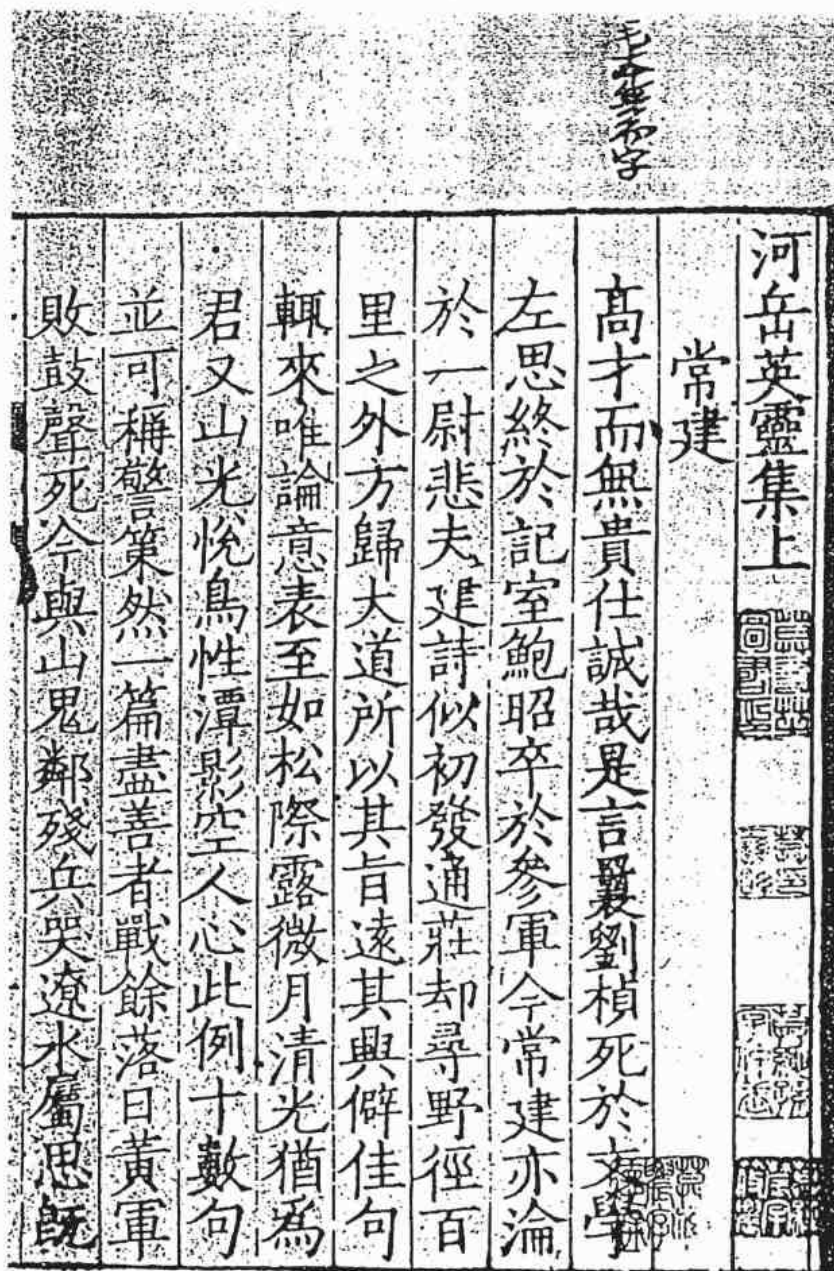 河岳英靈集上
常建
高才而無貴仕誠哉是言曩劉楨死於文學
左思終於記室鮑昭卒於參軍今常建亦淪
於一尉悲夫建詩似初發通莊却尋野徑百
里之外方歸大道所以其旨遠其興僻佳句
輒來唯論意表至如松際露微月清光猶爲
君又山光悅鳥性潭影空人心此例十數句
並可稱警策然一篇盡善者戰餘落日黃軍
敗鼓聲死今與山鬼鄰殘兵哭遼水屬思旣